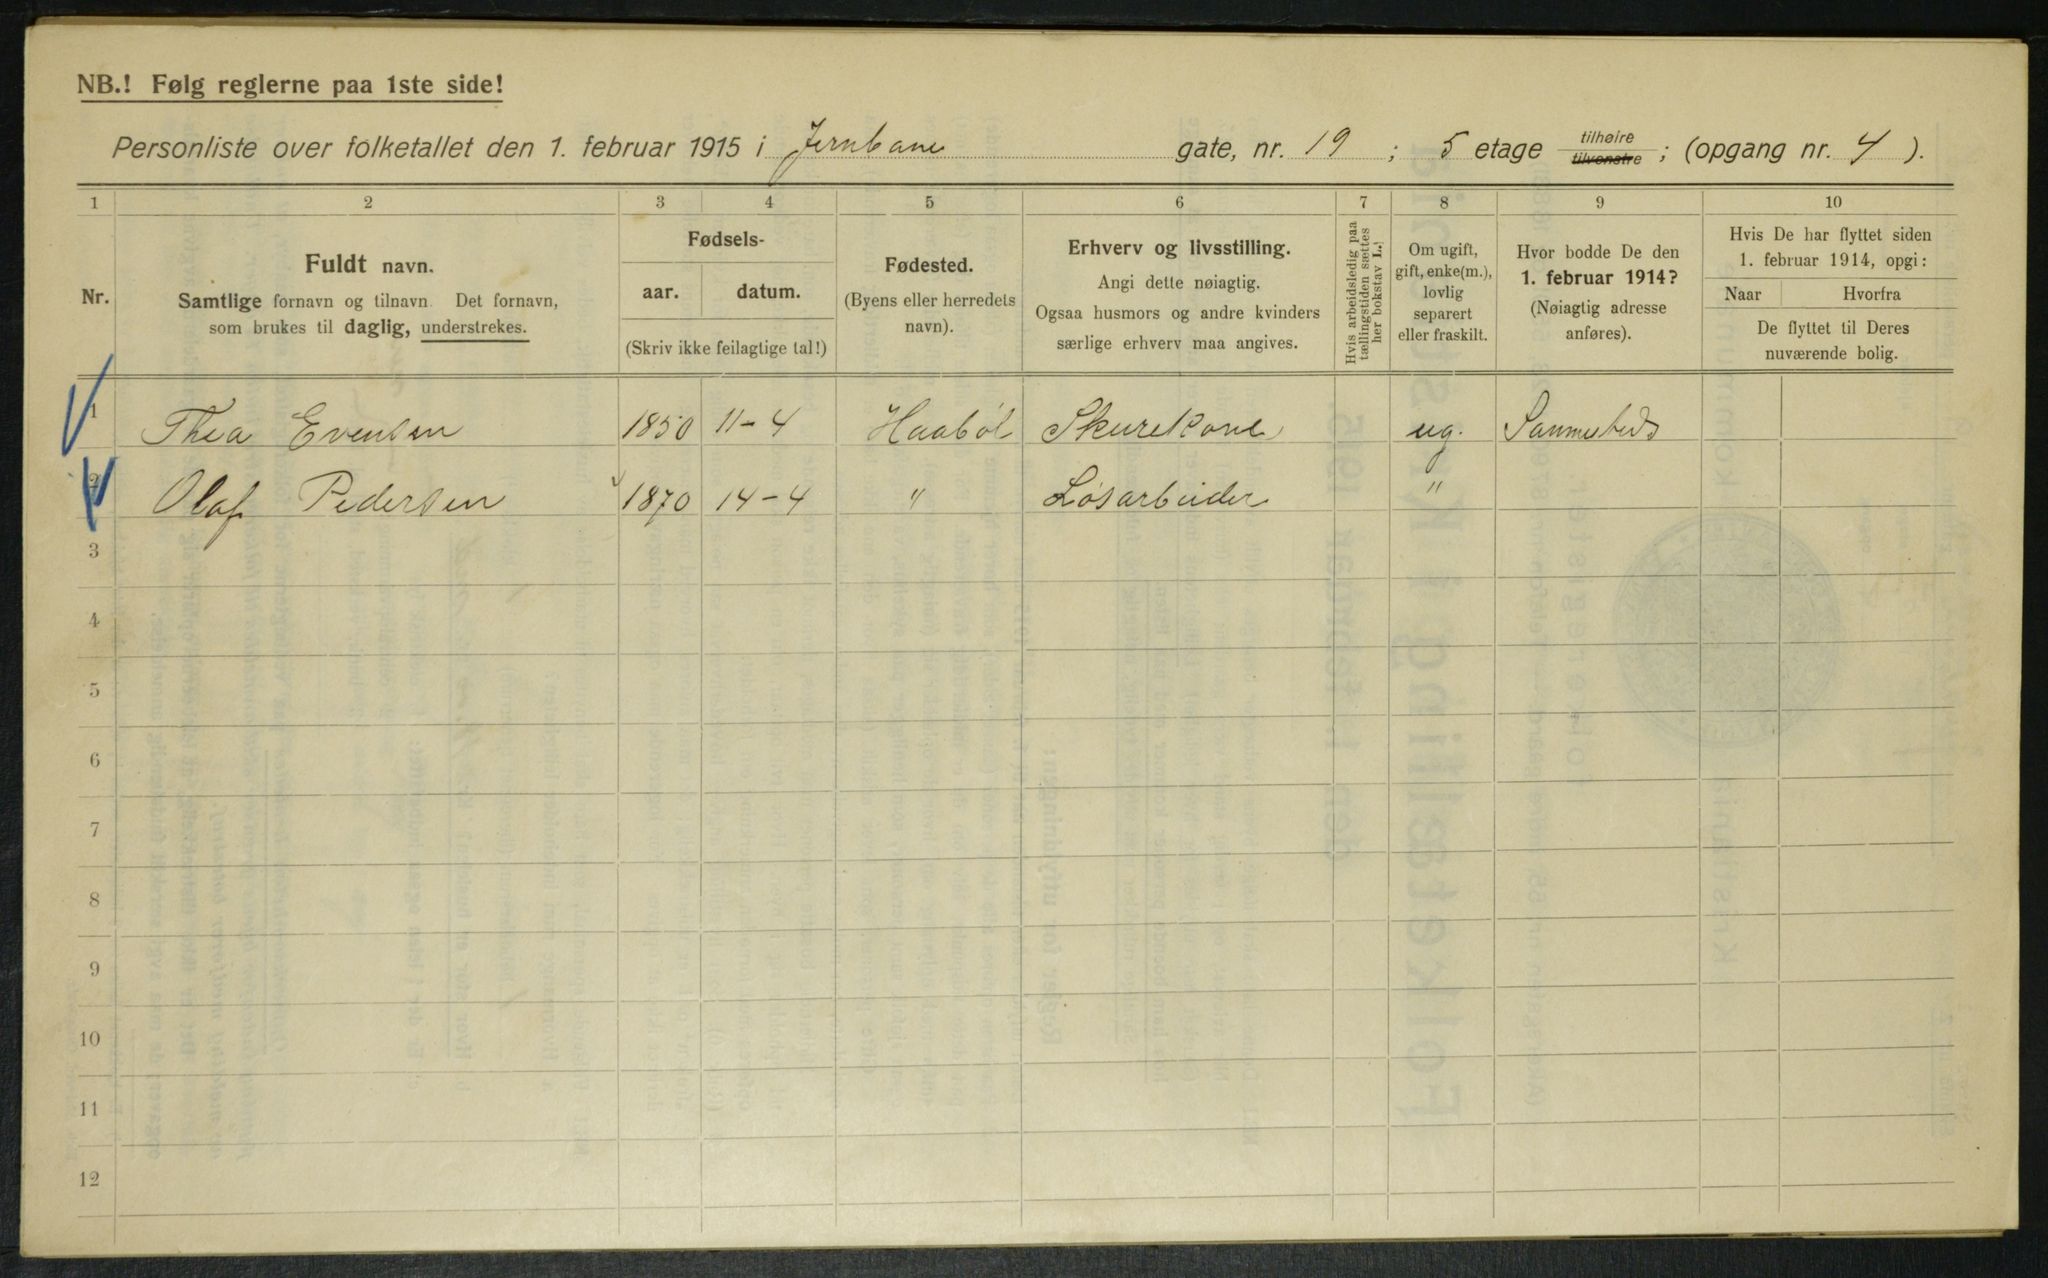 NB.! Følg reglerne paa 1ste side!
Personliste over folketallet den 1. februar 1915 i Jernbane gate, nr. 19 ; 5 etage tilhøire tilvenstre ; (opgang nr. 4 ).
1 2 3 4 5 6 7 8 9 10
Nr.
Fuldt navn.
Samtlige fornavn og tilnavn. Det fornavn,
som brukes til daglig, understrekes.
Fødsels-
aar. datum.
(Skriv ikke feilagtige tal!)
Fødested.
(Byens eller herredets
navn).
Erhverv og livsstilling.
Angi dette nøiagtig.
Ogsaa husmors og andre kvinders
særlige erhverv maa angives.
Hvis arbeidsledig paa
tællingstiden sættes
her bokstav L.
Om ugift,
gift, enke(m.),
lovlig
separert
eller fraskilt.
Hvor bodde De den
1. februar 1914?
(Nøiagtig adresse
anføres).
Hvis De har flyttet siden
1. februar 1914, opgi:
Naar Hvorfra
De flyttet til Deres
nuværende bolig.
1 Thea Evensen 1850 11-4 Haabøl Skurekone ug. Sammesteds
2 Olaf Pedersen 1870 14-4 " Løsarbeider "
3
4
5
6
7
8
9
10
11
12